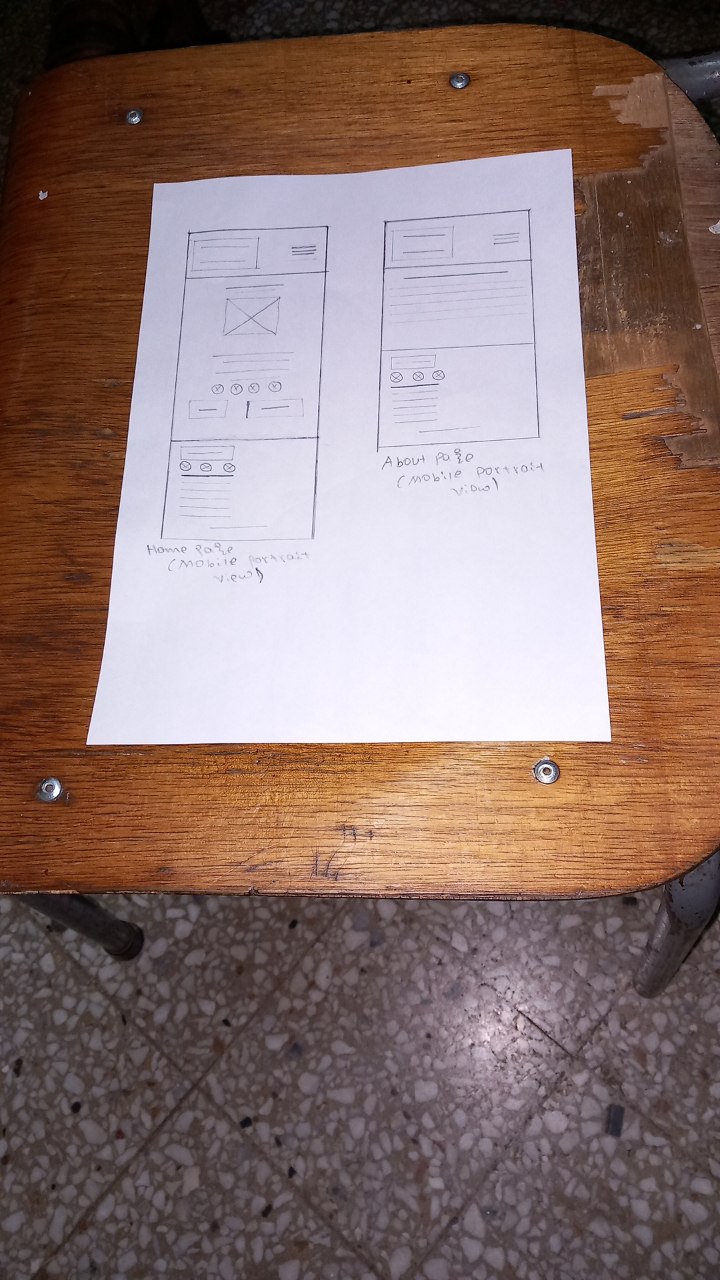 Home page
(Mobile portrait
view)
About page
(Mobile portrait
view)